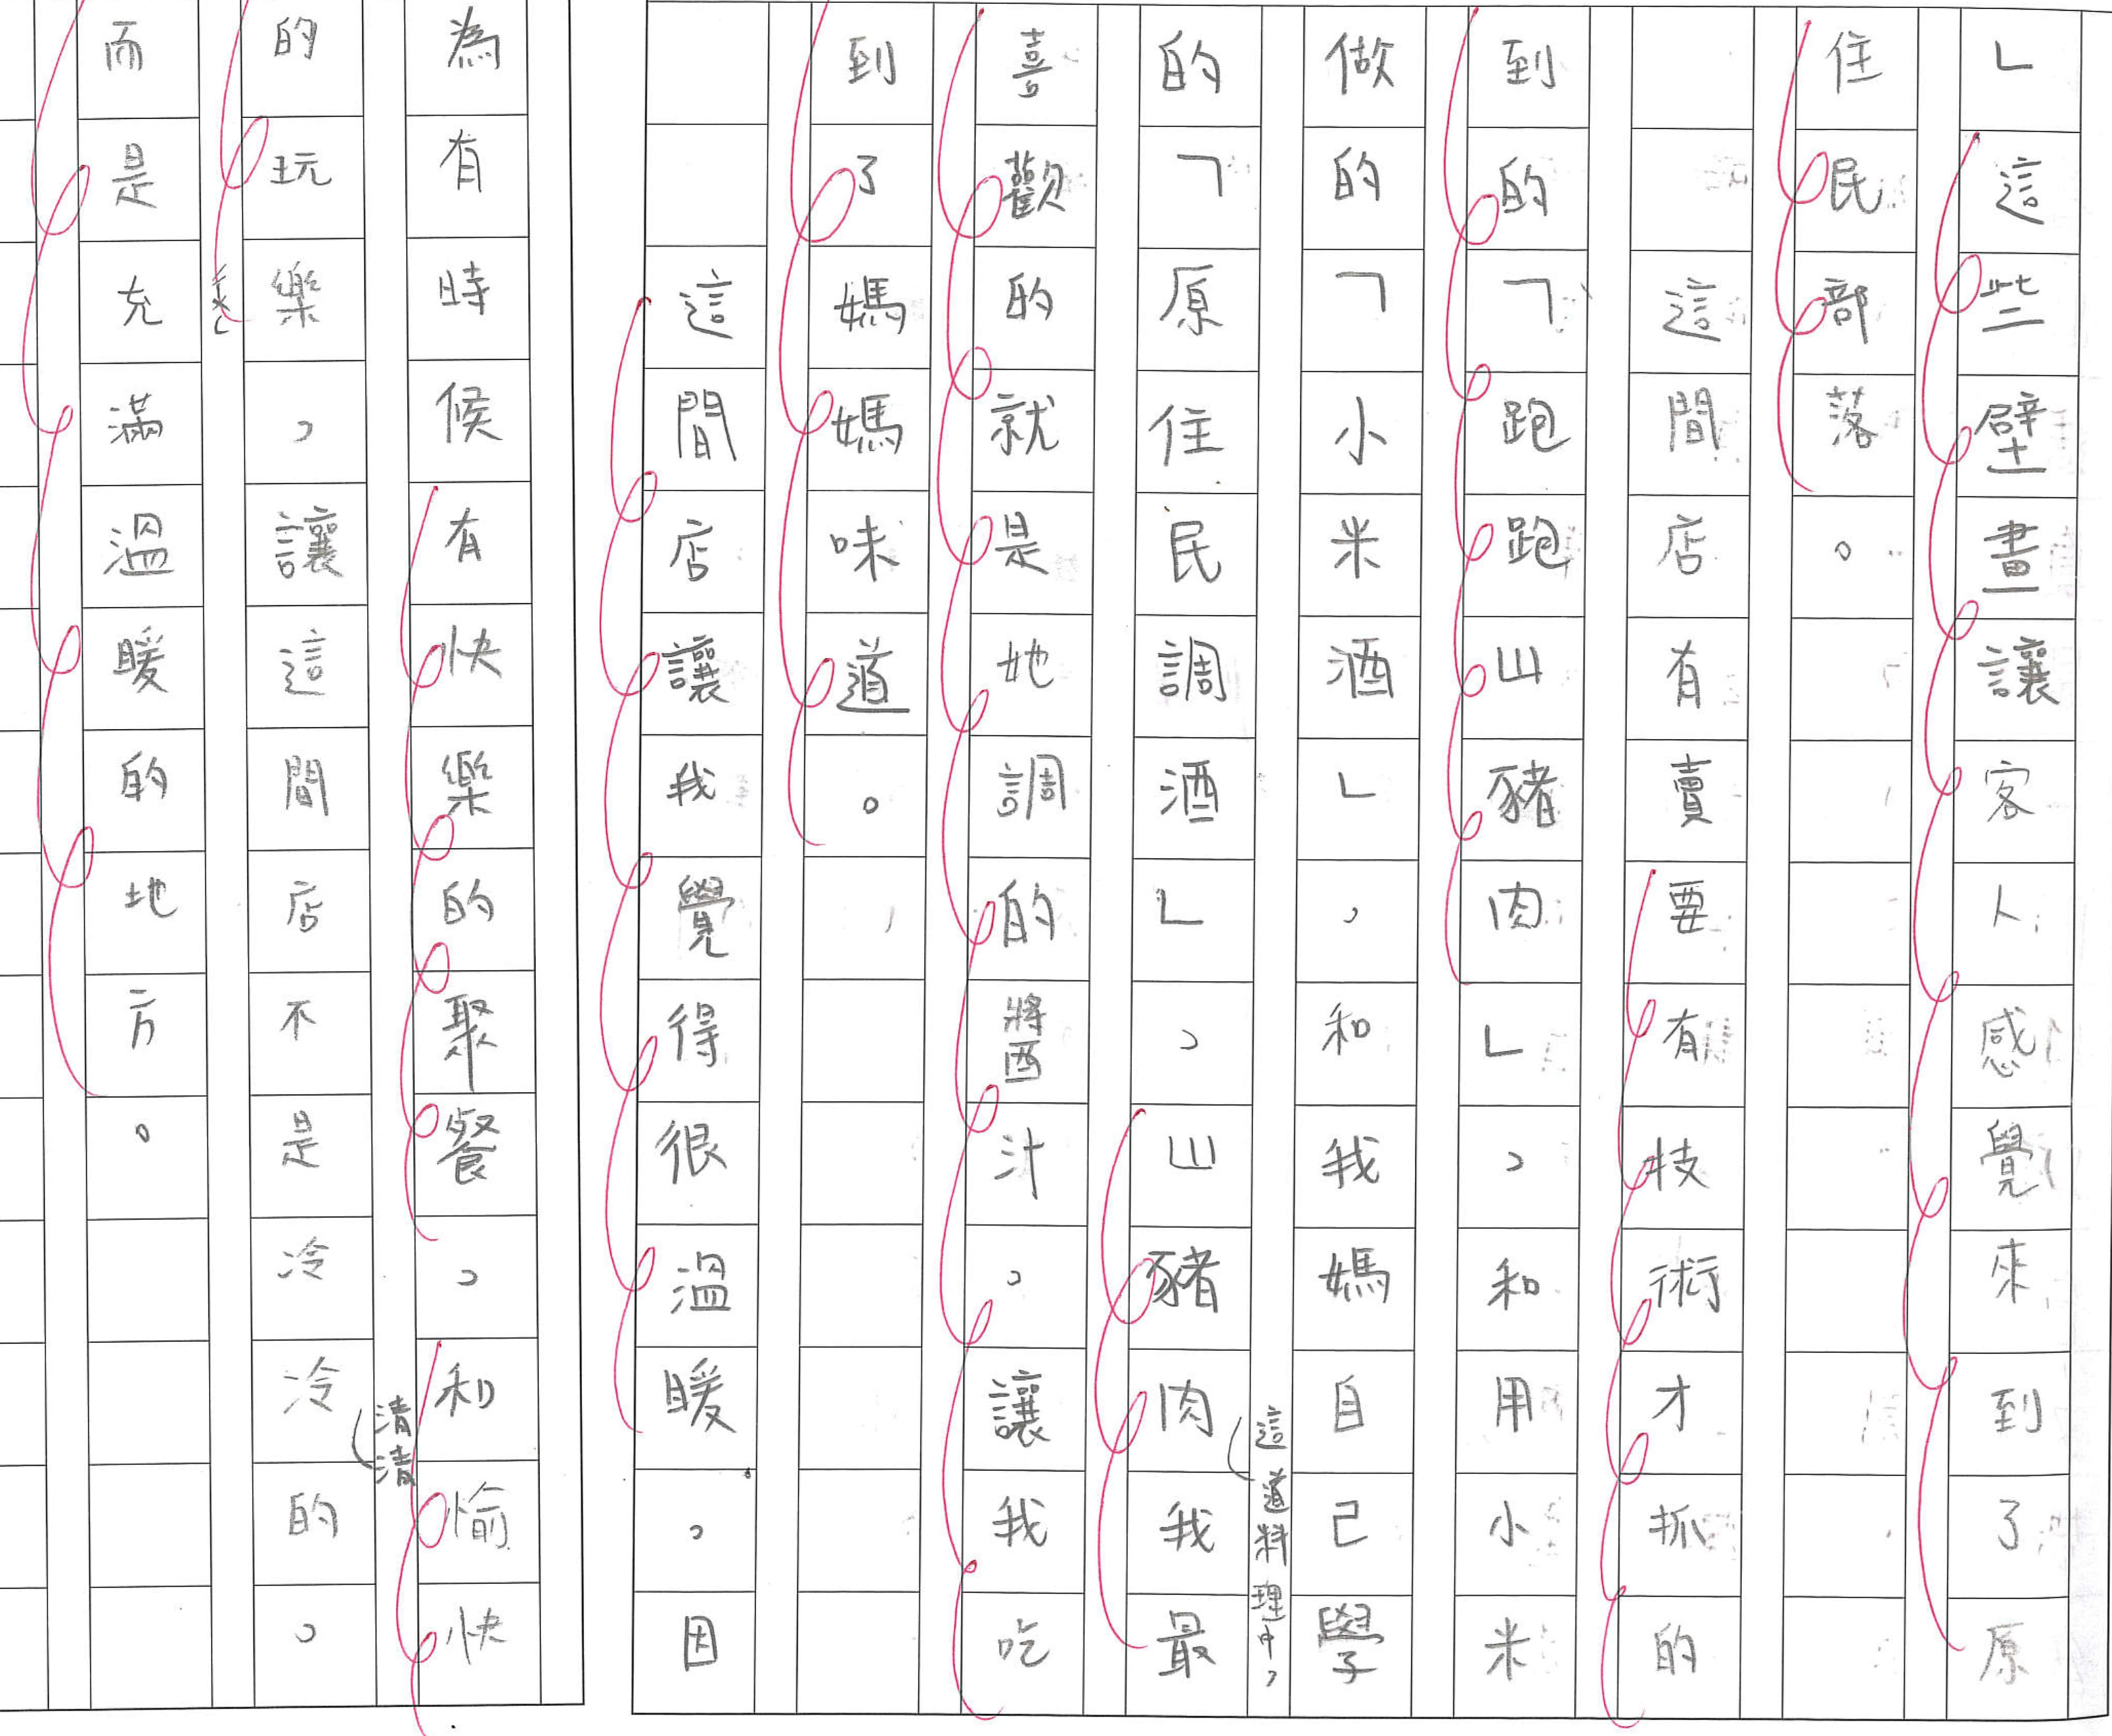 」這些壁畫讓客人感覺來到了原
住民部落。
這間店有賣要有技術才抓的
到的「跑跑山豬肉」，和用小米
做的「小米酒」，和我媽自己學
這道料理中，
的「原住民調酒」，山豬肉我最
喜歡的就是她調的醬汁，讓我吃
到了媽媽味道。
這間店讓我覺得很溫暖，因
為有時候有快樂的聚餐，和愉快
清清
的玩樂，讓這間店不是冷冷的，
而是充滿溫暖的地方。